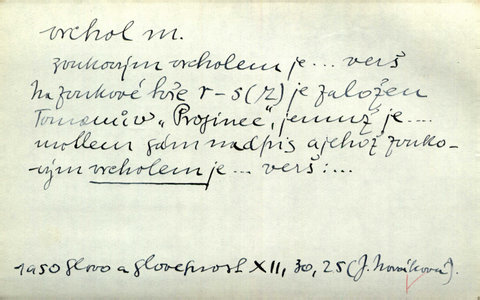 vrchol m.
zvukovým vrcholem je ... verš
Na zvukové hře r – s (z) je založen
Tomanův „Prosinec“, jemuž je ....
mottem sám nadpis a jehož zvuko-
vým vrcholem je ... verš: ...
1950 Slovo a slovesnost XII, 30, 25 (J. Nováková).